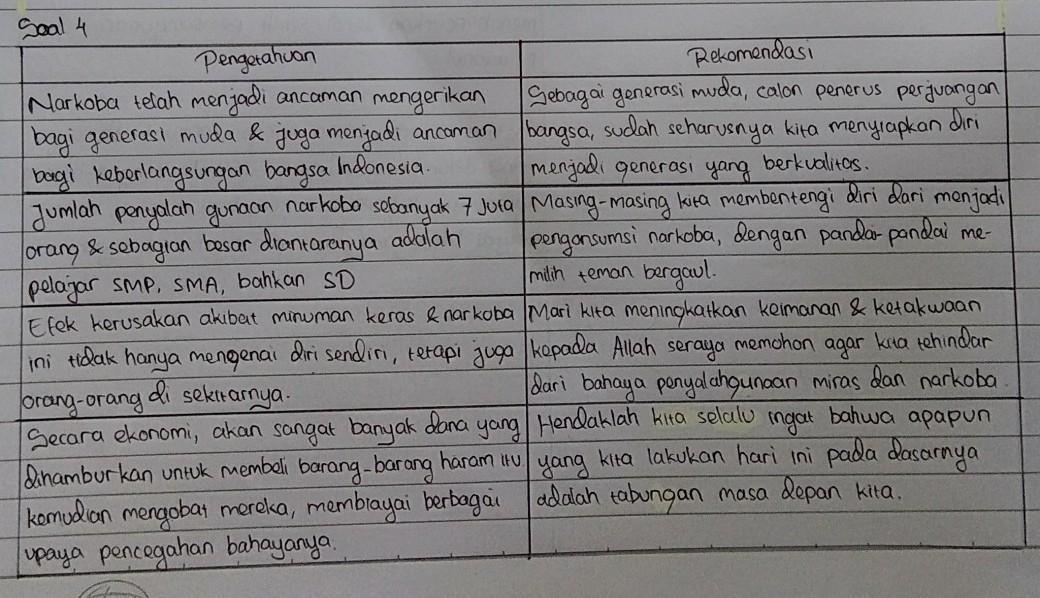 Soal 4
Pengetahuan
Rekomendasi
Narkoba telah menjadi ancaman mengerikan
bagi generasi muda & juga menjadi ancaman
bagi keberlangsungan bangsa Indonesia.
Sebagai generasi muda, calon penerus perjuangan
bangsa, sudah seharusnya kita menyiapkan diri
menjadi generasi yang berkualitas.
Jumlah penyalah gunaan narkoba sebanyak 7 Juta
orang & sebagian besar diantaranya adalah
pelajar SMP, SMA, bahkan SD
Masing-masing kita membentengi diri dari menjadi
pengonsumsi narkoba, dengan pandai-pandai me-
milih teman bergaul.
Efek kerusakan akibat minuman keras & narkoba
ini tidak hanya mengenai diri sendiri, tetapi juga
orang-orang di sekitarnya.
Mari kita meningkatkan keimanan & ketakwaan
kepada Allah seraya memohon agar kita tehindar
dari bahaya penyalahgunaan miras dan narkoba.
Secara ekonomi, akan sangat banyak dana yang
dihamburkan untuk membeli barang-barang haram itu
kemudian mengobat mereka, membiayai berbagai
upaya pencegahan bahayanya.
Hendaklah kita selalu ingat bahwa apapun
yang kita lakukan hari ini pada dasarnya
adalah tabungan masa depan kita.